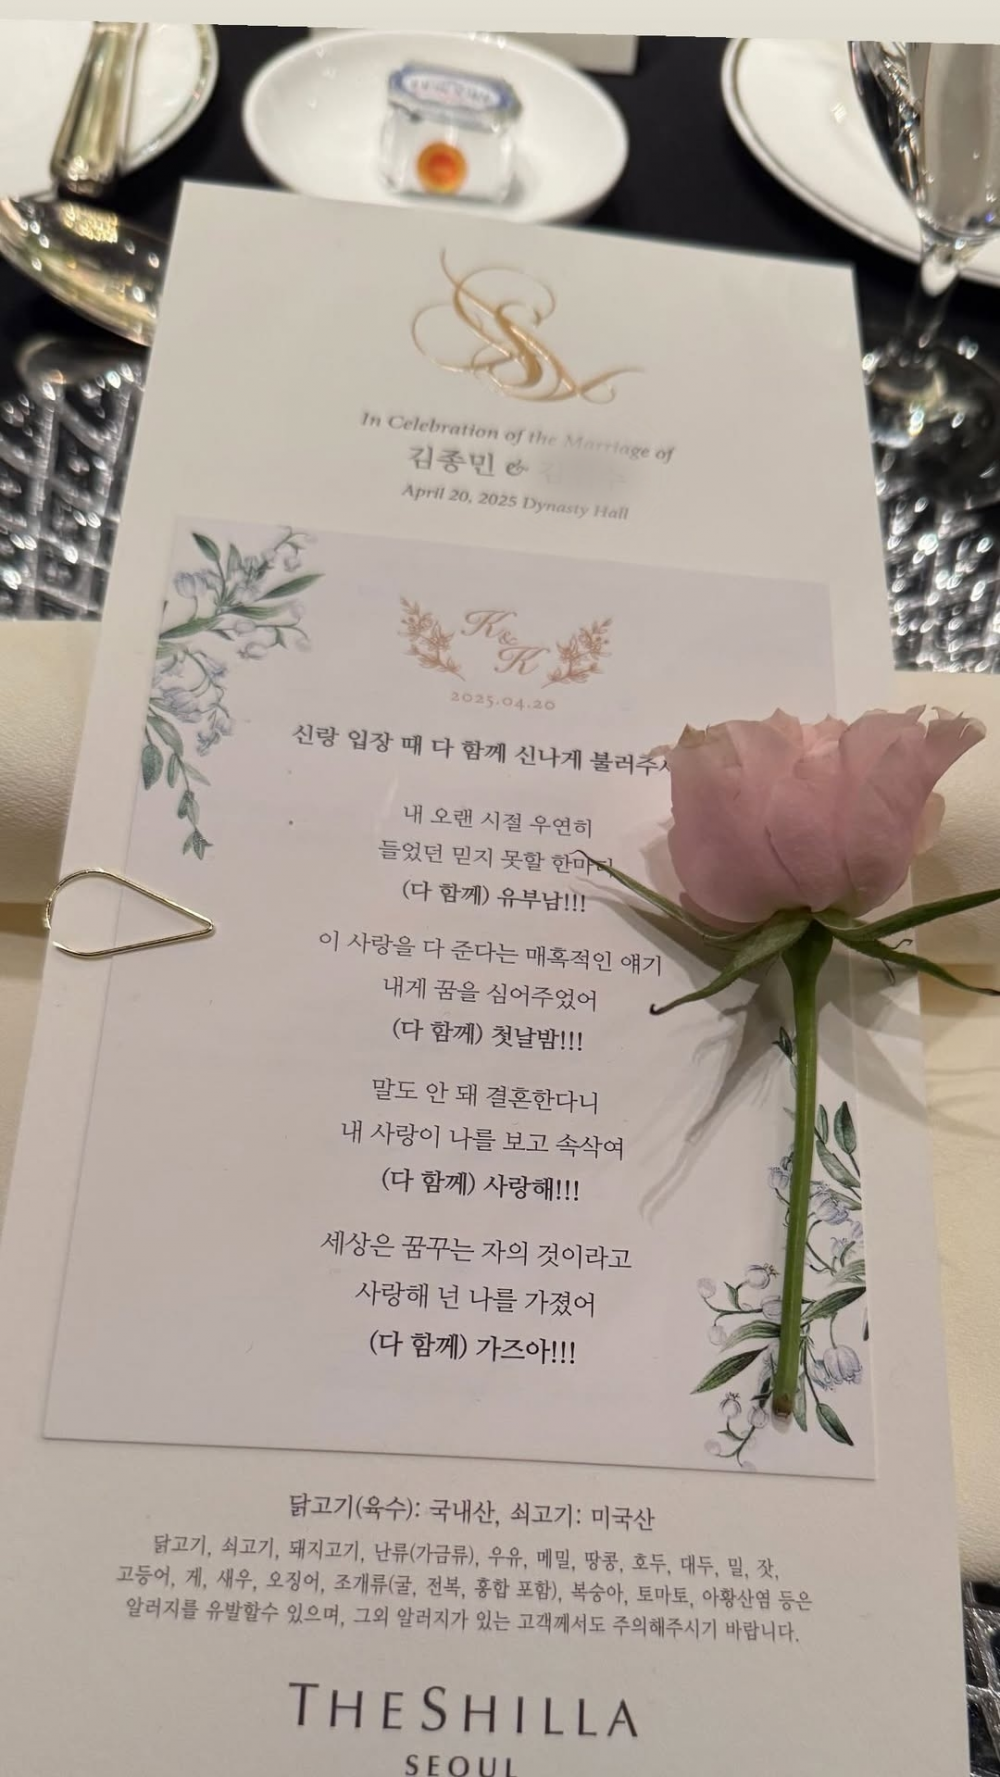 In Celebration of the Marriage of
김종민 &
April 20, 2025 Dynasty Hall
K & K
2025.04.20
신랑 입장 때 다 함께 신나게
내 오랜 시절 우연히
들었던 믿지 못할 한마디
(다 함께) 유부남!!!
이 사랑을 다 준다는 매혹적인 얘기
내게 꿈을 심어주었어
(다 함께) 첫날밤!!!
말도 안 돼 결혼한다니
내 사랑이 나를 보고 속삭여
(다 함께) 사랑해!!!
세상은 꿈꾸는 자의 것이라고
사랑해 넌 나를 가졌어
(다 함께) 가즈아!!!
닭고기(육수): 국내산, 쇠고기: 미국산
닭고기, 쇠고기, 돼지고기, 난류(가금류), 우유, 메밀, 땅콩, 호두, 대두, 밀, 잣,
고등어, 게, 새우, 오징어, 조개류(굴, 전복, 홍합 포함), 복숭아, 토마토, 아황산염 등은
알러지를 유발할수 있으며, 그외 알러지가 있는 고객께서도 주의해주시기 바랍니다.
THE SHILLA
SEOUL